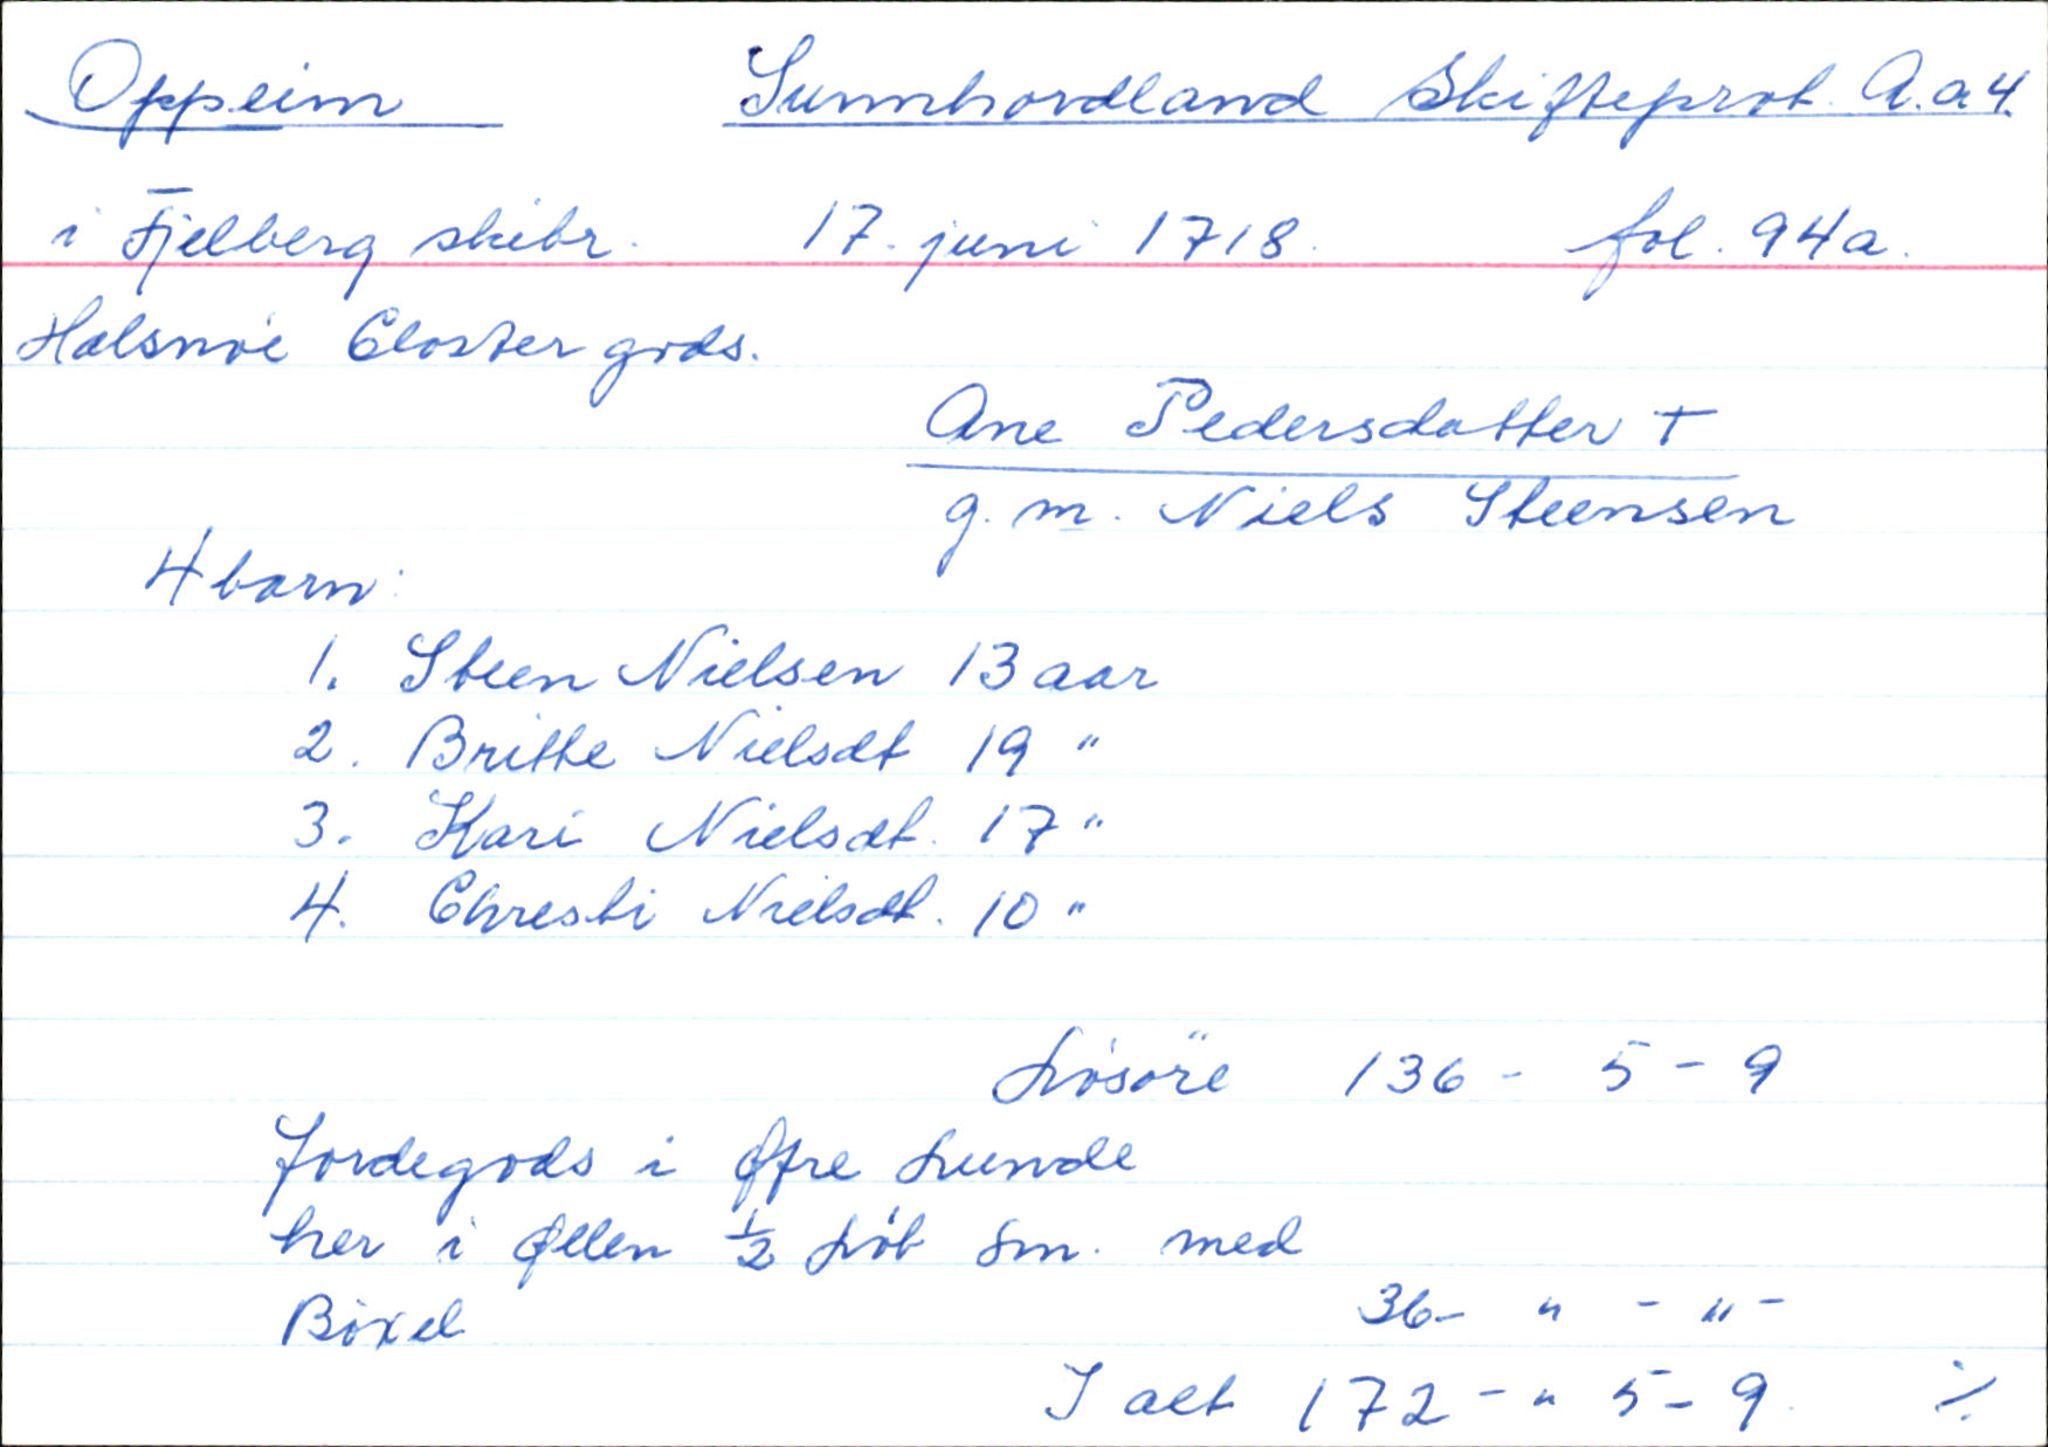 Oppeim Sunnhordland Skifteprot. A.a 4.
i Fjelberg skibr. 17. juni 1718. fol. 94a.
Halsnöe Closter gods.
Ane Pedersdatter +
g. m. Niels Steensen
4 barn:
1. Steen Nielsen 13 aar
2. Britte Nielsdt 19 "
3. Kari Nielsdt. 17 "
4. Chresti Nielsdt. 10 "
Lösöre 136 - 5 - 9
Jordegods i Øfre Lunde
her i Ølen ½ Löb Sm. med
Böxel 36 - " - " -
I alt 172 - " 5 - 9 ./.